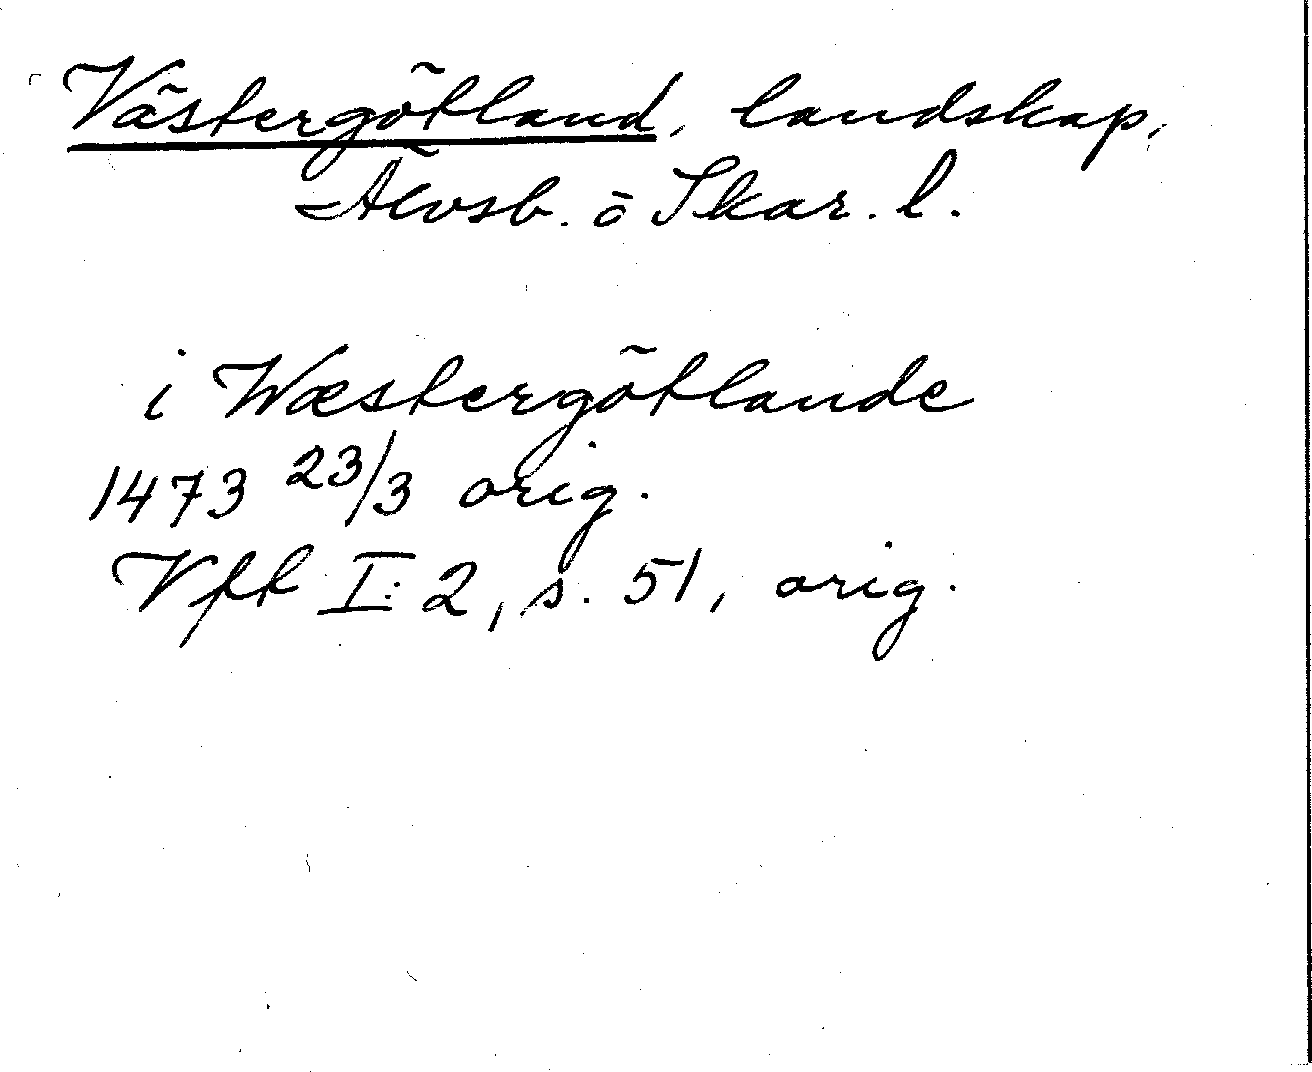 Västergötland, landskap,
Älvsb. o Skar. l.
i Wæstergötlande
1473 23/3 orig.
Vft I:2, s. 51, orig.